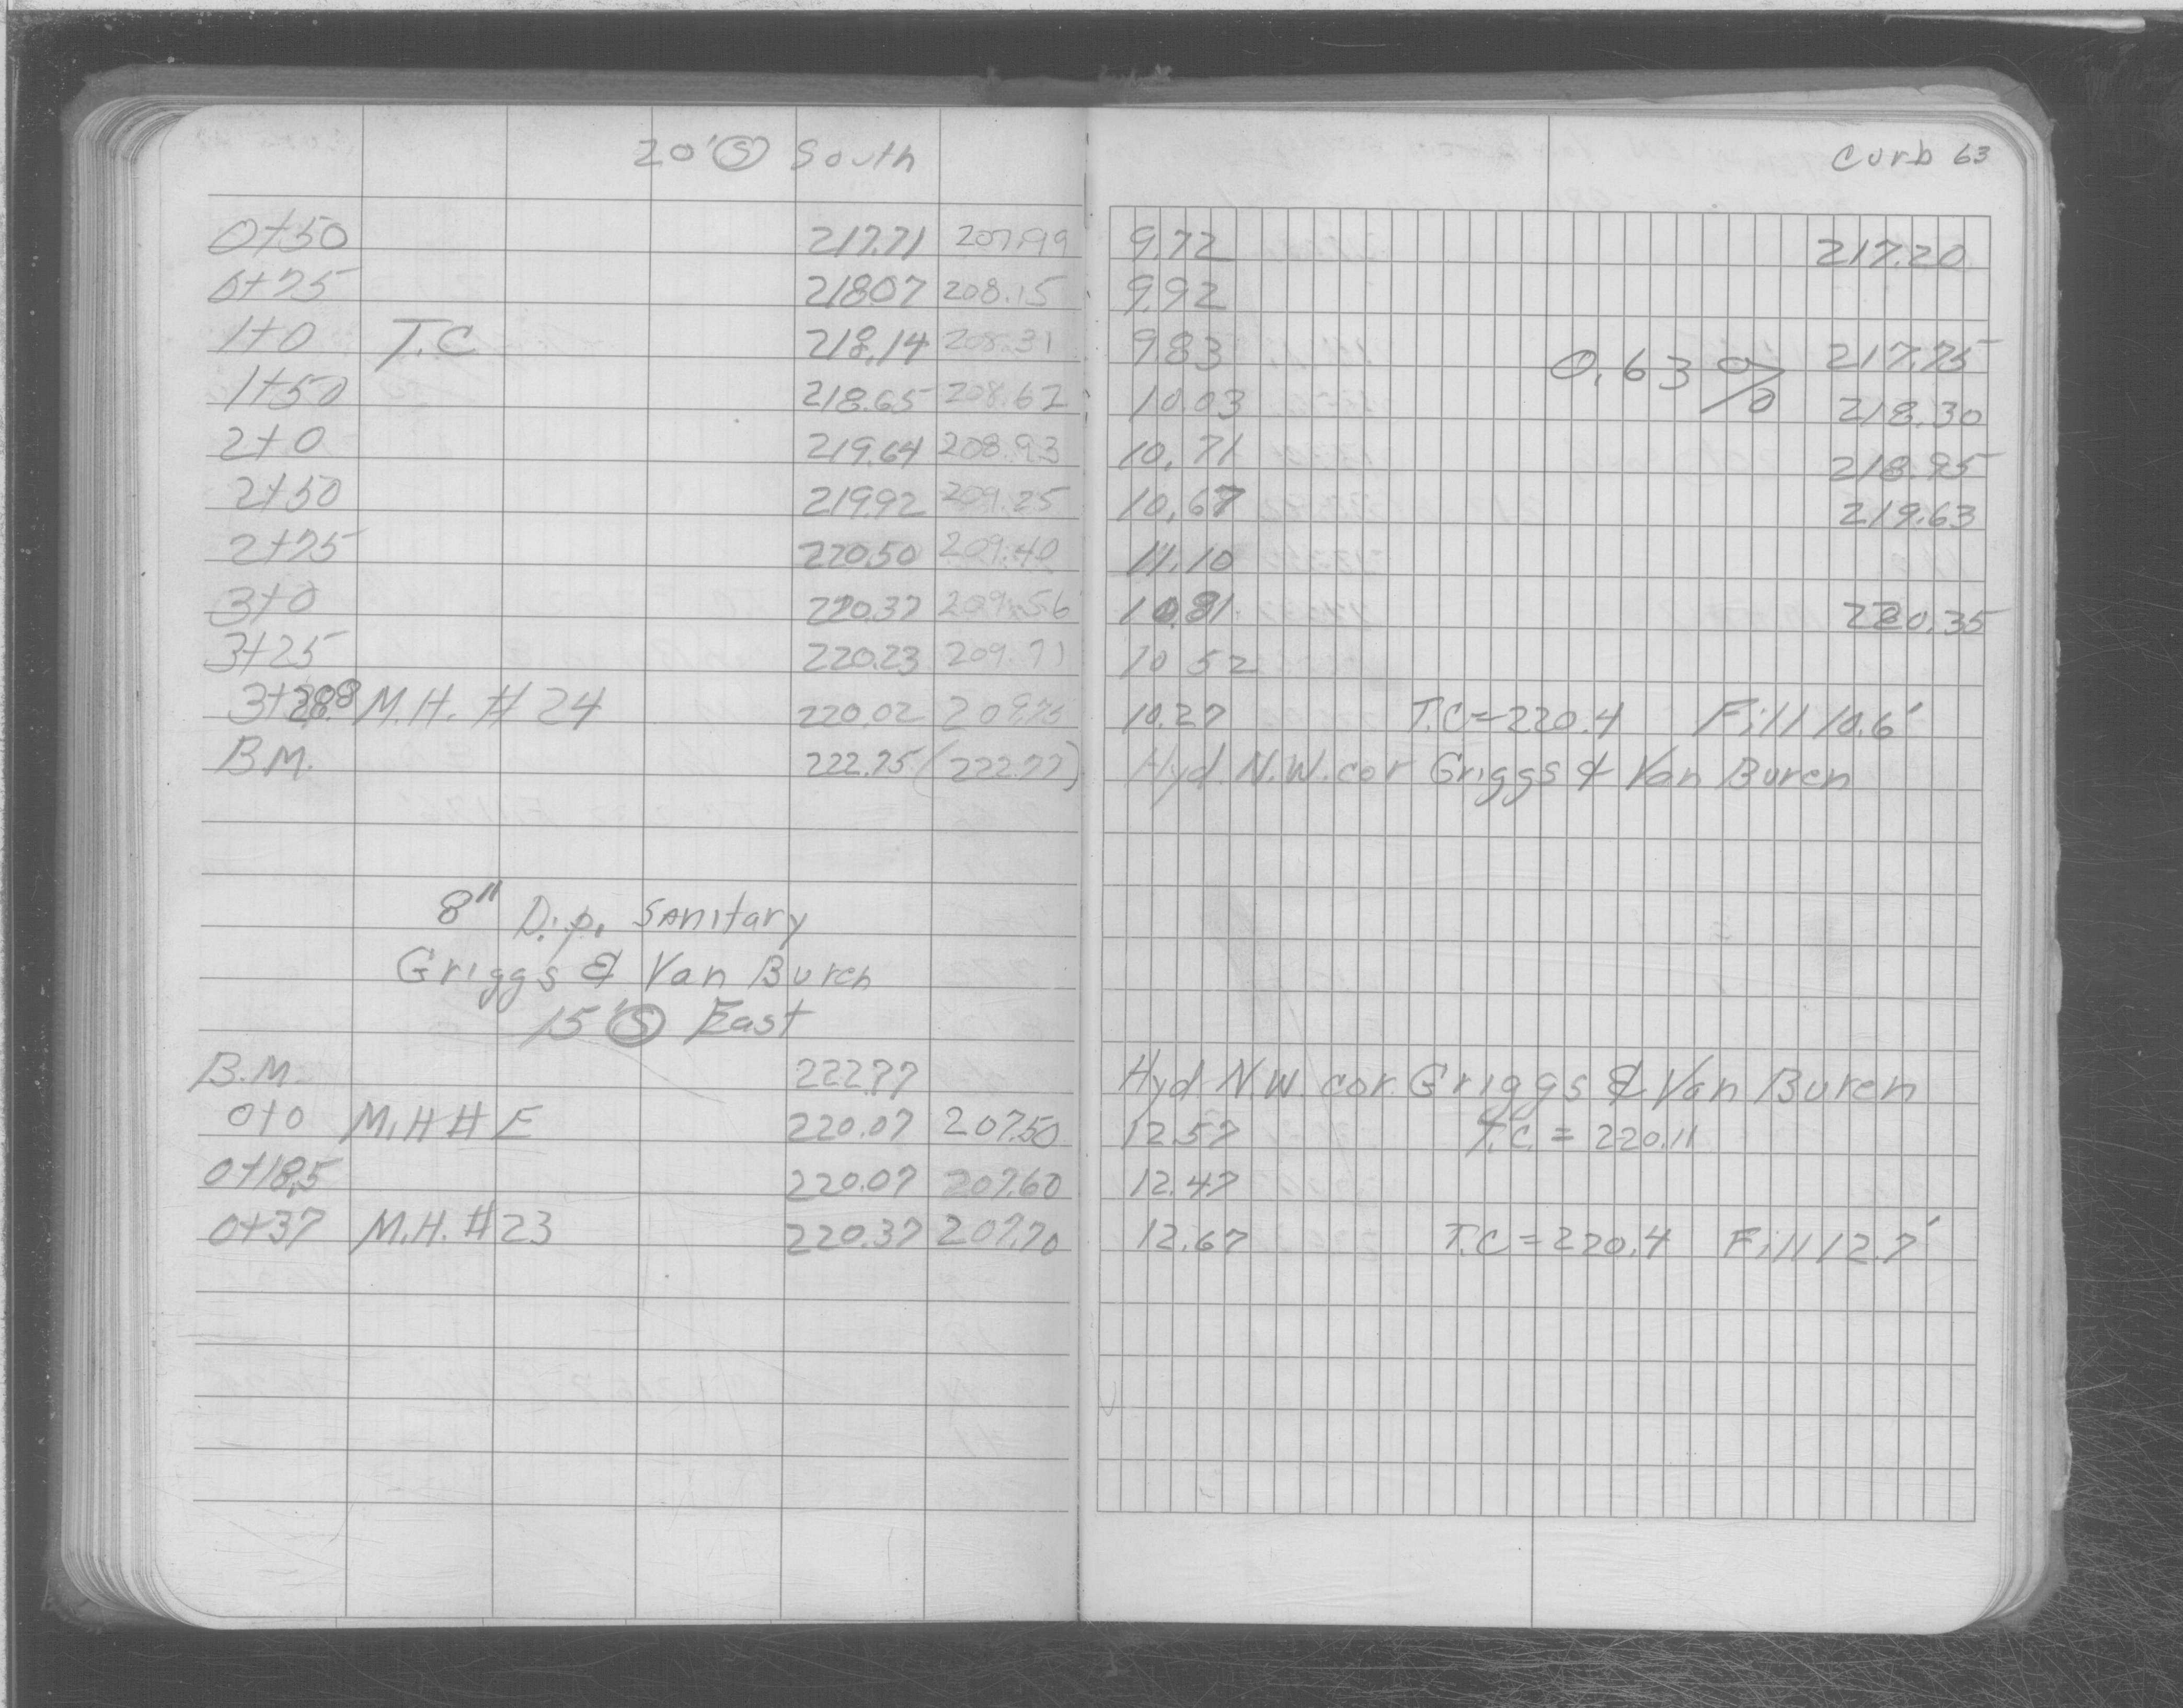 20' Ⓢ South
Curb 63
0+50 217.71 207.99 9.72 217.20
0+75 218.07 208.15 9.92
1+0 T.C 218.14 208.31 9.83 217.75
0.63 %
1+50 218.65 208.62 10.03 218.30
2+0 219.64 208.93 10.71 218.95
2+50 219.92 209.25 10.67 219.63
2+75 220.50 209.40 11.10
3+0 220.37 209.56 10.81 220.35
3+25 220.23 209.71 10 52
3+28.8 M.H. # 24 220.02 209.75 10.27 T.C = 220.4 Fill 10.6'
B.M. 222.75 (222.77) Hyd. N.W. cor Griggs & Van Buren
8" D.i.p. Sanitary
Griggs & Van Buren
15' Ⓢ East
B.M. 222.77 Hyd. N.W. cor. Griggs & Van Buren
0+0 M.H # E 220.07 207.50 12.57 T.C. = 220.11
0+18.5 220.07 207.60 12.47
0+37 M.H. #23 220.37 207.70 12.67 T.C = 220.4 Fill 12.7'